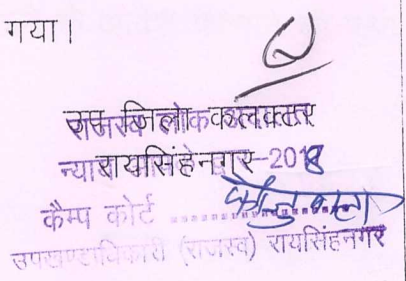 गया।
उप जिला कलक्टर
राजस्व लोक
रायसिंहनगर-2018
न्याय
कैम्प कोर्ट
उपखण्डाधिकारी (राजस्व) रायसिंहनगर